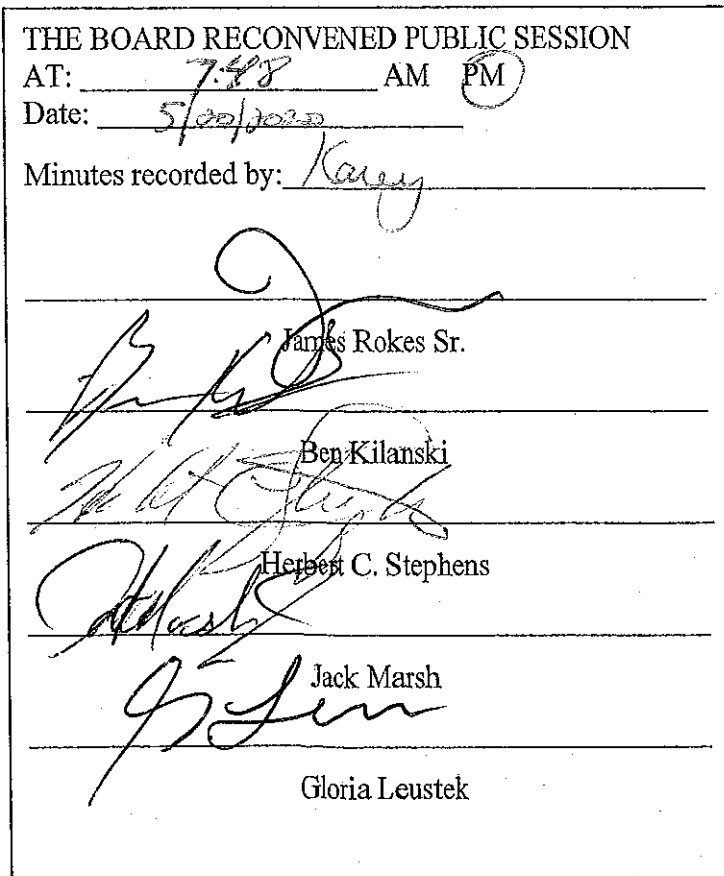 THE BOARD RECONVENED PUBLIC SESSION
AT: 7:48 AM PM
Date: 5/20/2020
Minutes recorded by: Karey
James Rokes Sr.
Ben Kilanski
Herbert C. Stephens
Jack Marsh
Gloria Leustek